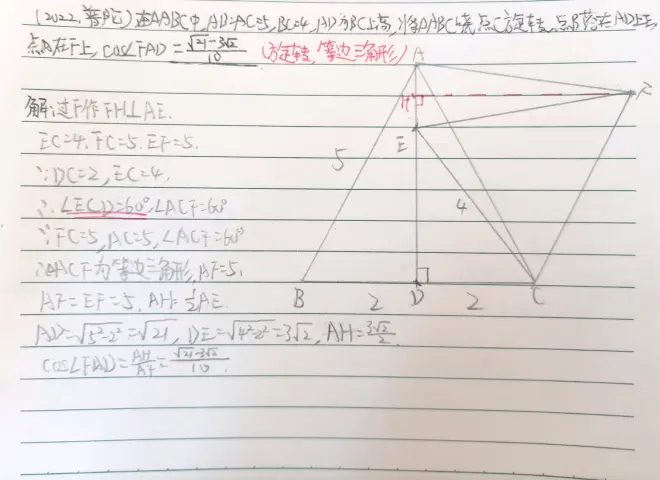 (2022.普陀)在△ABC中,AB=AC=5,BC=4,AD为BC上高,将△ABC绕点C旋转,点B落在AD上E,
点A在F上,cos∠FAD=(√21-3√2)/10 (旋转,等边三角形)
解:过F作FH⊥AE.
EC=4.FC=5.EF=5.
∵DC=2,EC=4.
∴∠ECD=60°,∠ACF=60°
∵FC=5,AC=5,∠ACF=60°
∴△ACF为等边三角形,AF=5.
AF=EF=5,AH=1/2AE.
AD=√5²-2²=√21,DE=√4²-2²=3√2,AH=3√2/2.
cos∠FAD=AH/AF=(√21-3√2)/10.
A
H
F
E
5
4
B
2
D
2
C